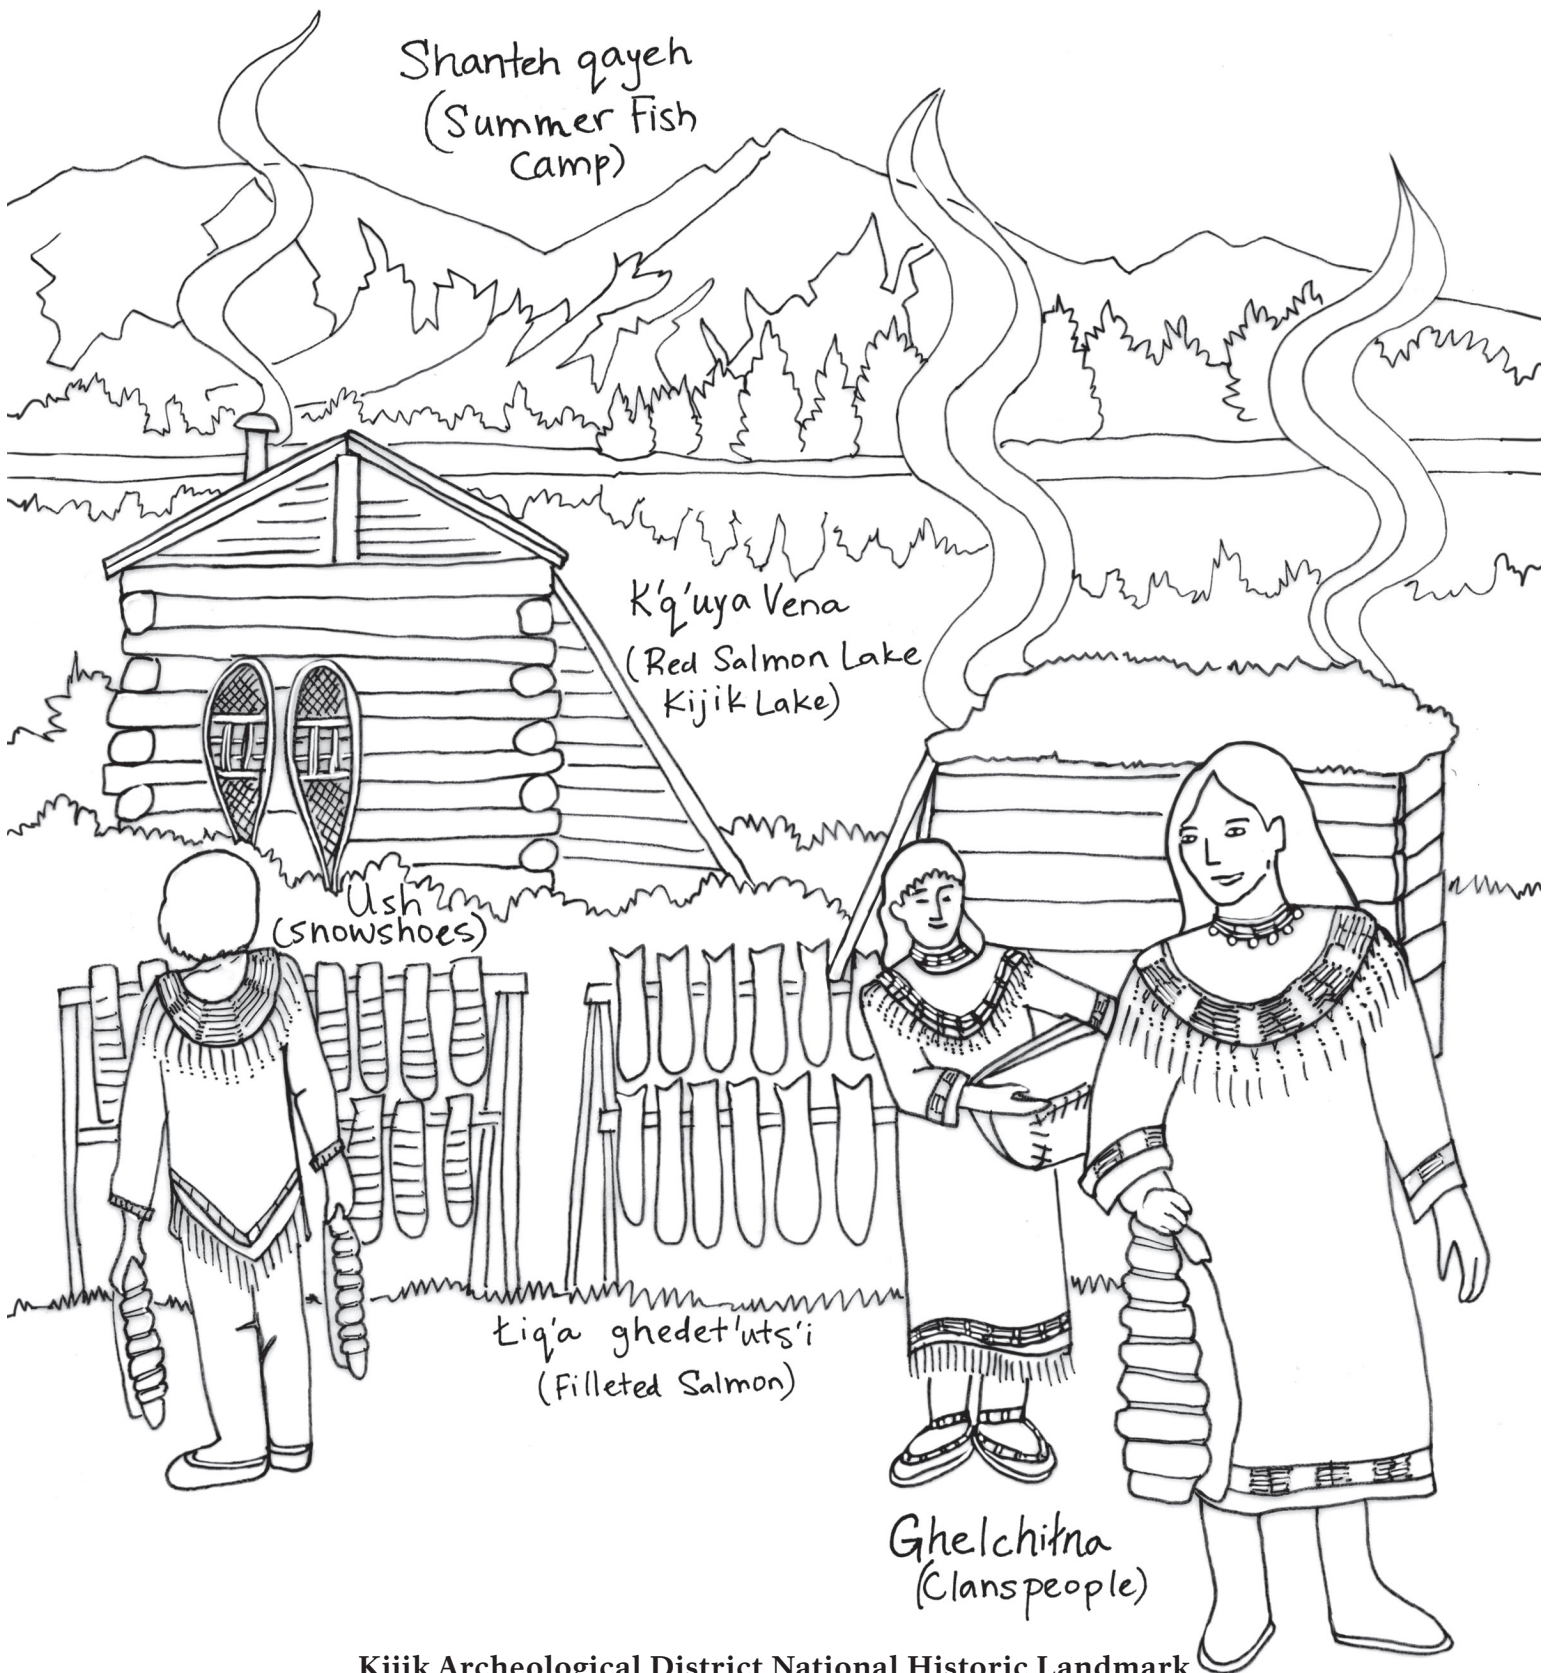 Shanteh qayeh
(Summer Fish
Camp)
K'q'uya Vena
(Red Salmon Lake
Kijik Lake)
Ush
(snowshoes)
Łiq'a ghedet'uts'i
(Filleted Salmon)
Ghelchiłna
(Clanspeople)
Kijik Archeological District National Historic Landmark